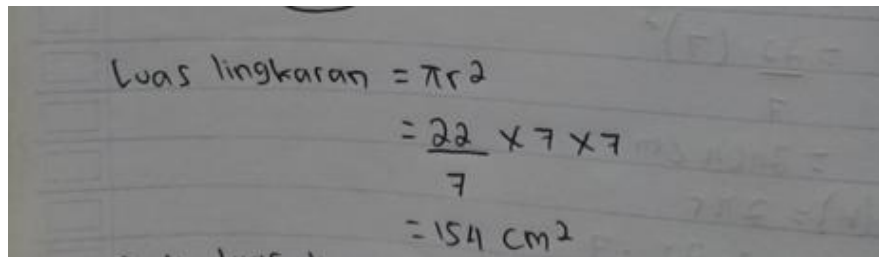 Luas lingkaran = πr²
= 22/7 × 7 × 7
= 154 cm²